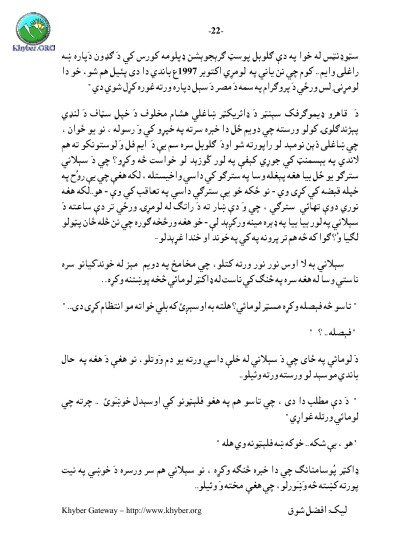 -22-
Khyber.ORG
سټوډنټس له خوا په دې ګلوبل پوسټ ګرېجوېشن ډپلومه کورس کې دَ ګډون دَپاره ښه
راغلی وايم.. کوم چې نن يانې په لومړي اکتوبر 1997ع باندې دا دی پيل هم شو ، خو دا
لومړنۍ لس ورځې دَ پروګرام په سمه دَ مصر دَ سېل دپاره ورته غوره کړل شوې دي "
دَ قاهرو ډيموګرفک سېنټر دَ ډائريکټر ښاغلي هشام مخلوف دَ خپل سټاف دَ لنډې
پېژندګلوۍ کولو ورسته چې دويم ځل دا خبره سرته په خبرو کې وَ رسوله ، نو يو ځوان ،
چې ښاغلی ذېن نومېد لو راپورته شو اوډ ګلوبل سره سم يې دَ ايم فل وَ لوستونکو ته هم
لاندې په بېسمنټ کې جوړې کېفې په لور ګوزېد لو خواست څه وکړو؟ چې دَ سېلانۍ
سترګو يو ځل بيا هغه پېغله وسا په سترګو کې داسې واخيستله ، لکه هغې چې يې روُح په
خپله قبضه کې کړی وي - نو ځکه خو يې سترګې داسې په تعاقب کې وې - هو..لکه هغه
نورې دوې تنهائي سترګې ، چې وَ دې ښار ته دَ راتګ له لومړۍ ورځې تر دې ساعته دَ
سېلاني په لور بيا بيا په ډېره مينه ورکېد لې - خو هغه ورځخه ګوره چې نن څله ځان پټولو
لګيا وُ؟ ګوا که څه هم تر پرونه په کې په خوند او خندا غږېدلو -
سېلاني به لا اوس نور نور ورته کتلو، چې مخامخ په دويم مېز له خوندکيانو سره
ناستې وسا له هغه سره په څنګ کې ناست له ډاکټر لومائي څخه پوښتنه وکړه..
" تاسو څه فېصله وکړه مسټر لومائي؟ هلته به اوسېږئ که بلې خوا ته مو انتظام کړی دی.. "
"فېصله.. ؟ "
دَ لومائي په ځای چې دَ سېلاني له خلې داسې ورته يو دم وَوتلو، نو هغې دَ هغه په حال
باندې موسېد لو ورسته ورته وئيلو..
" دَ دې مطلب دا دی ، چې تاسو هم په هغو فلېټونو کې اوسېدل خوښوئ .. چرته چې
لومائي ورتله غواړي "
"هو ، بې شکه.. خو که ښه فلېټونه وي هله "
ډاکټر پُوسامنتاګ چې دا خبره څنګه وکړه ، نو سېلاني هم سر ورسره دَ خوښې په نيت
پورته کښته څه وَښورلو، چې هغې مخته وَ وئيلو..
Khyber Gateway – http://www.khyber.org
ليک: افضل شوق